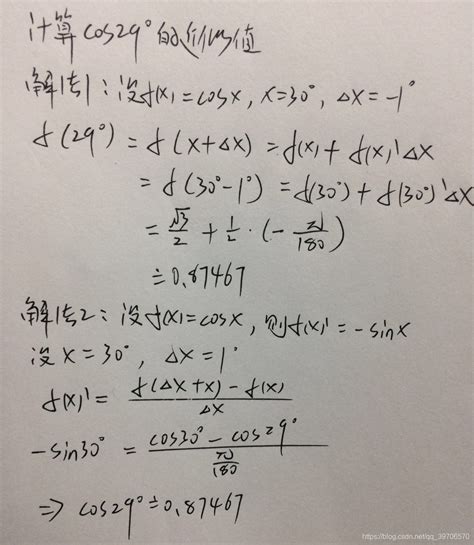 计算cos29°的近似值
解法1:设f(x)=cosx, x=30°, Δx=-1°
f(29°) = f(x+Δx) = f(x)+f(x)'Δx
= f(30°-1°) = f(30°)+f(30°)'Δx
= √3/2 + 1/2·(-π/180)
≐0.87467
解法2:设f(x)=cosx, 则f(x)'=-sinx
设x=30°, Δx=1°
f(x)' = f(Δx+x)-f(x) / Δx
-sin30° = cos30°-cos29° / π/180
⇒ cos29°≐0.87467
https://blog.csdn.net/qq_39706570